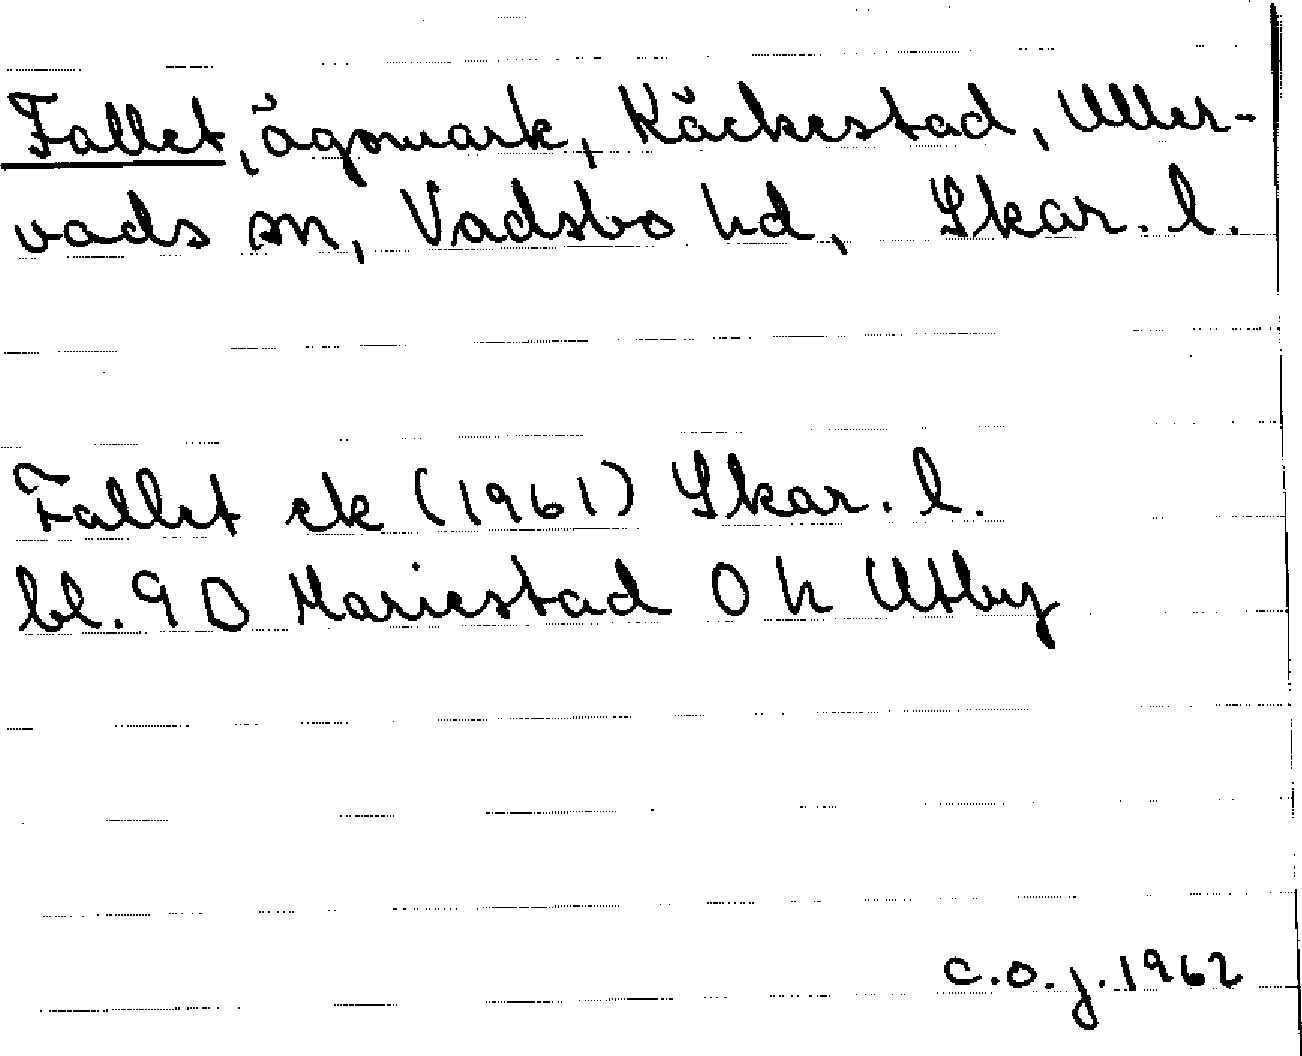 Fallet, ägomark, Käckestad, Uller-
vads sn, Vadsbo hd, Skar. l.
Fallet ek (1961) Skar. l.
bl. 9 D Mariestad 0 h Utby
C.O.J. 1962